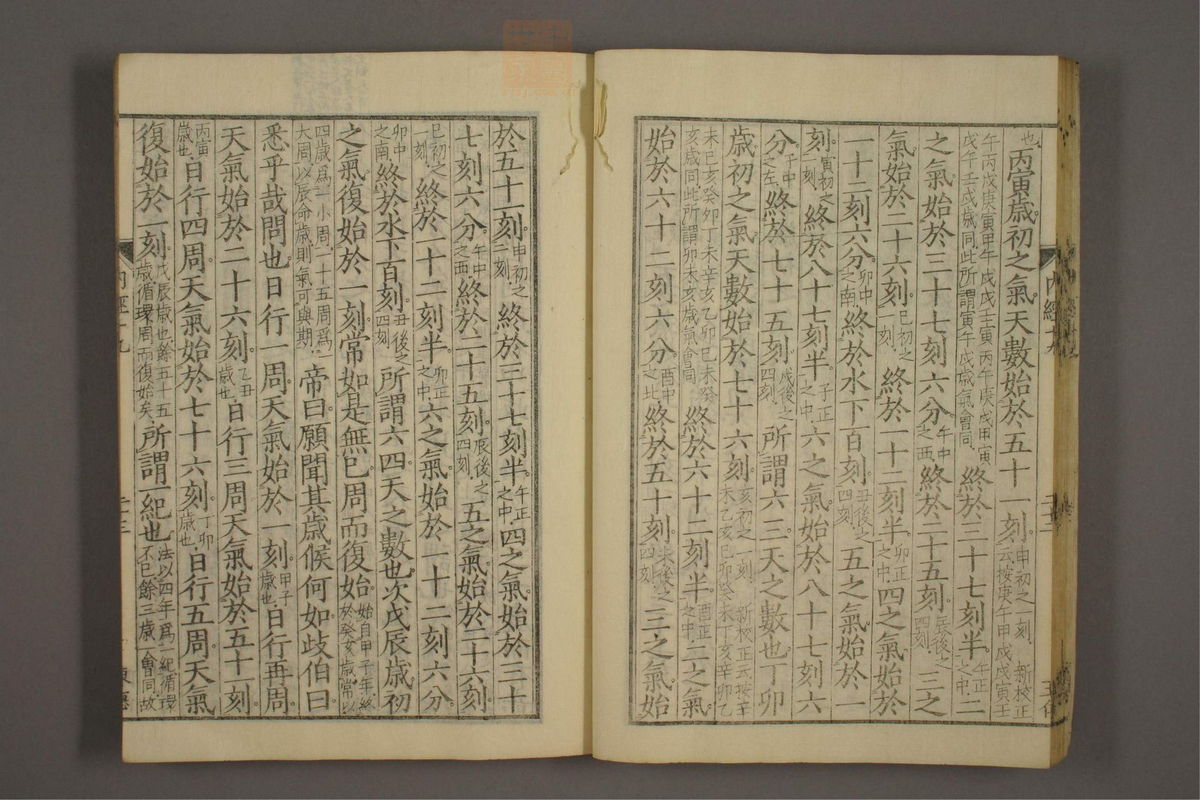 也丙寅歲初之氣天數始於五十一刻申初之一刻新校正云按庚午甲戌戊寅壬
午丙戌庚寅甲午戊戌壬寅丙午庚戌甲寅戊午壬戌歲同此所謂寅午戌歲氣會同終於三十七刻半午正之中二
之氣始於三十七刻六分午中之西終於二十五刻辰後之四刻三之
氣始於二十六刻巳初之一刻終於一十二刻半卯正之中四之氣始於
一十二刻六分卯中之南終於水下百刻丑後之四刻五之氣始於一
刻寅初之一刻終於八十七刻半子正之中六之氣始於八十七刻六
分子中之左終於七十五刻戌後之四刻所謂六三天之數也丁卯
歲初之氣天數始於七十六刻亥初之一刻新校正云按辛未乙亥己卯癸未丁亥辛卯乙
未己亥癸卯丁未辛亥乙卯己未癸亥歲同此所謂卯未亥歲氣會同終於六十二刻半酉正之中二之氣
始於六十二刻六分酉中之北終於五十刻未後之四刻三之氣始
於五十一刻申初之一刻終於三十七刻半午正之中四之氣始於三十
七刻六分午中之西終於二十五刻辰後之四刻五之氣始於二十六刻
巳初之一刻終於一十二刻半卯正之中六之氣始於一十二刻六分
卯中之南終於水下百刻丑後之四刻所謂六四天之數也次戊辰歲初
之氣復始於一刻常如是無已周而復始始自甲子年終於癸亥歲常以
四歲爲一小周一十五周爲一大周以辰命歲則氣可與期帝曰願聞其歲候何如歧伯曰
悉乎哉問也日行一周天氣始於一刻甲子歲也日行再周
天氣始於二十六刻乙丑歲也日行三周天氣始於五十一刻
丙寅歲也日行四周天氣始於七十六刻丁卯歲也日行五周天氣
復始於一刻戊辰歲也餘五十五歲循環周而復始矣所謂一紀也法以四年爲一紀循環不已餘三歲一會同故
内經十九
二十三